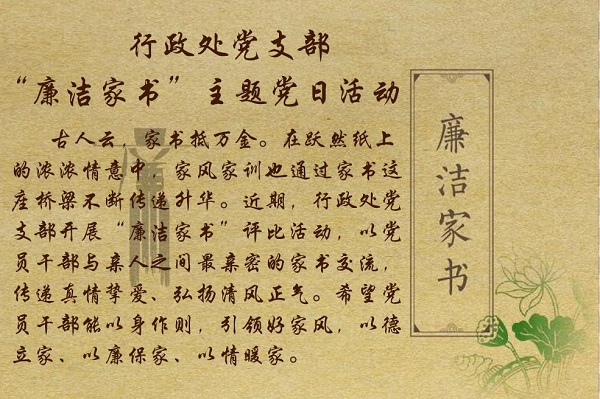 行政处党支部
“廉洁家书”主题党日活动
古人云，家书抵万金。在跃然纸上
的浓浓情意中，家风家训也通过家书这
座桥梁不断传递升华。近期，行政处党
支部开展“廉洁家书”评比活动，以党
员干部与亲人之间最亲密的家书交流，
传递真情挚爱、弘扬清风正气。希望党
员干部能以身作则，引领好家风，以德
立家、以廉保家、以情暖家。
廉洁家书